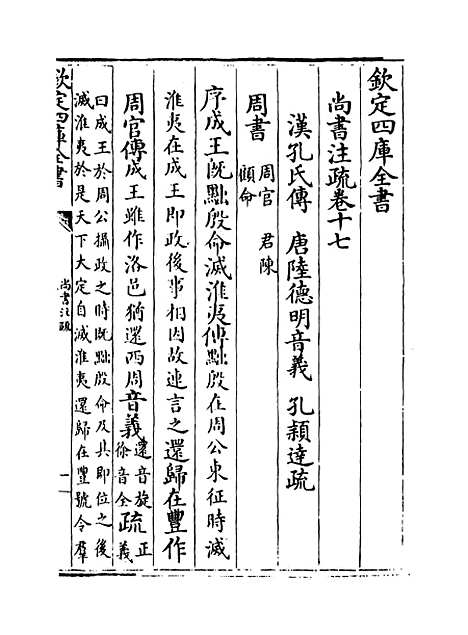 欽定四庫全書
尚書注疏卷十七
漢孔氏傳 唐陸德明音義 孔穎達疏
周書 周官 君陳
顧命
序成王既黜殷命滅淮夷傳黜殷在周公東征時滅
淮夷在成王即政後事相因故連言之還歸在豐作
周官傳成王雖作洛邑猶還西周音義還音旋
徐音全疏正
義
曰成王於周公攝政之時既黜殷命及其即位之後
滅淮夷於是天下大定自滅淮夷還歸在豐號令羣
欽定四庫全書
尚書注疏
一